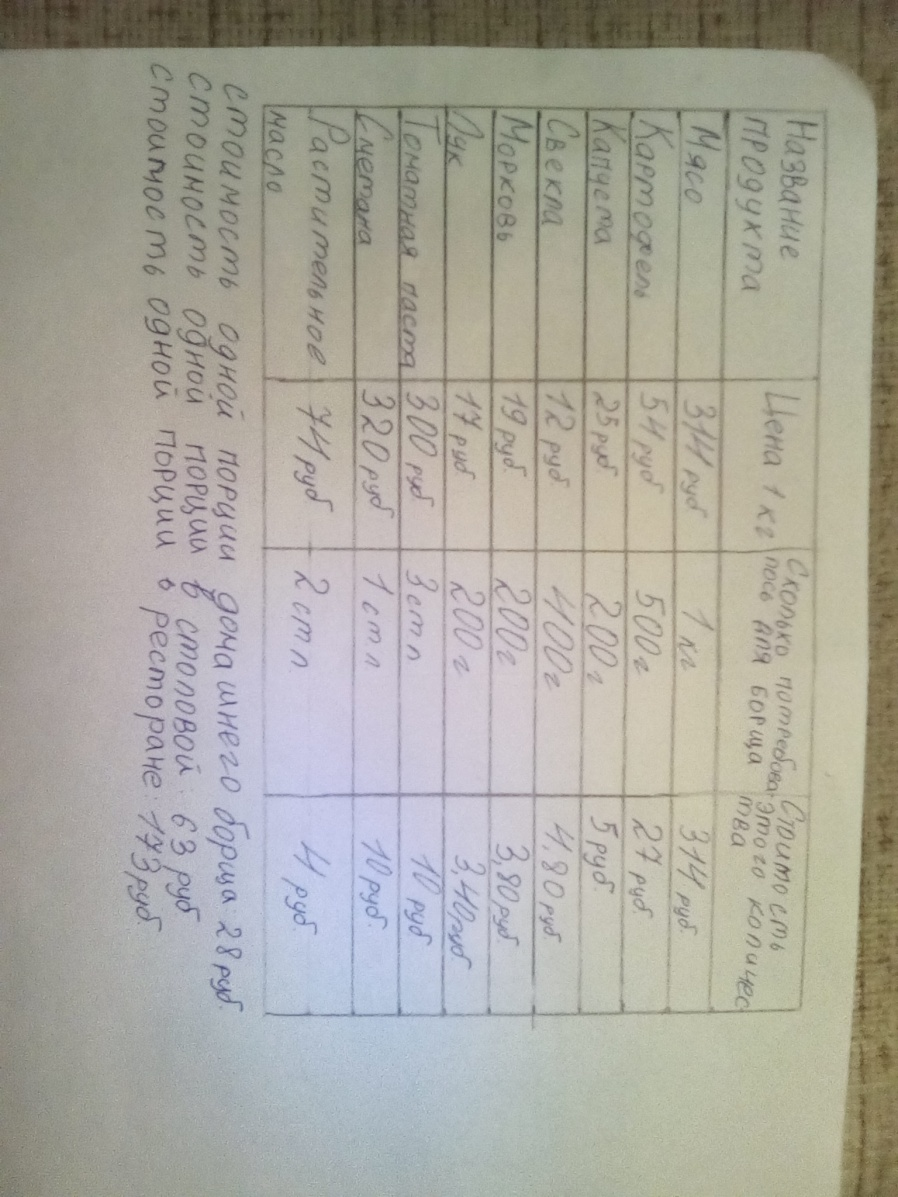 Название Цена 1 кг Сколько потребова- Стоимость
продукта лось для борща этого количес
тва
Мясо 314 руб 1 кг 314 руб.
Картофель 54 руб 500г 27 руб.
Капуста 25 руб 200г 5 руб.
Свекла 12 руб 400г 4,80 руб
Морковь 19 руб. 200г 3,80 руб.
Лук 17 руб 200г 3,40 руб
Томатная паста 300 руб 3 ст л 10 руб
Сметана 320 руб 1 ст л 10 руб.
Растительное 74 руб 2 ст л 4 руб.
масло
стоимость одной порции домашнего борща 28 руб.
стоимость одной порции в столовой: 63 руб
стоимость одной порции в ресторане: 173 руб.